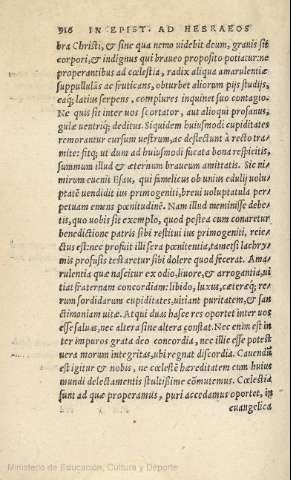 916 IN EPIST. AD HEBRAEOS
bra Christi, & sine qua nemo uidebit deum, grauis sit
corpori, & indignus qui braueo proposito potiatur: ne
properantibus ad cœlestia, radix aliqua amarulentiæ
suppullulãs ac fruticans, obturbet aliorum pijs studijs,
eaq; latius serpens, complures inquinet suo contagio.
Ne quis sit inter uos scortator, aut alioqui profanus,
gulæ uentriq; deditus. Siquidem huiusmodi cupiditates
remorantur cursum uestrum, ac deflectunt à recto tra
mite: fitq; ut dum ad huiusmodi fucata bona respicitis,
summum illud & æternum braueum amittatis. Sic ni
mirum euenit Esau, qui famelicus ob unius edulij uolu
ptatẽ uendidit ius primogeniti, breui uoluptatula per
petuam emens pœnitudinẽ. Nam illud meminisse debe
tis, quo uobis sit exemplo, quod postea cum conaretur
benedictione patris sibi restitui ius primogeniti, reie
ctus est: nec profuit illi sera pœnitentia, tametsi lachry
mis profusis testaretur sibi dolere quod fecerat. Ama
rulentia quæ nascitur ex odio, liuore, & arrogantia, ui
tiat fraternam concordiam: libido, luxus, cæteræq; re
rum sordidarum cupiditates, uitiant puritatem, & san
ctimoniam uitæ. Atqui duas hasce res oportet inter uos
esse saluas, nec altera sine altera cõstat. Nec enim est in
ter impuros grata deo concordia, nec illic esse potest
uera morum integritas, ubi regnat discordia. Cauendũ
est igitur & nobis, ne cœlestẽ hæreditatem cum huius
mundi delectamentis stultissime cõmutemus. Cœlestia
sunt ad quæ properamus, puri accedamus oportet, in
euangelica
Ministerio de Educación, Cultura y Deporte